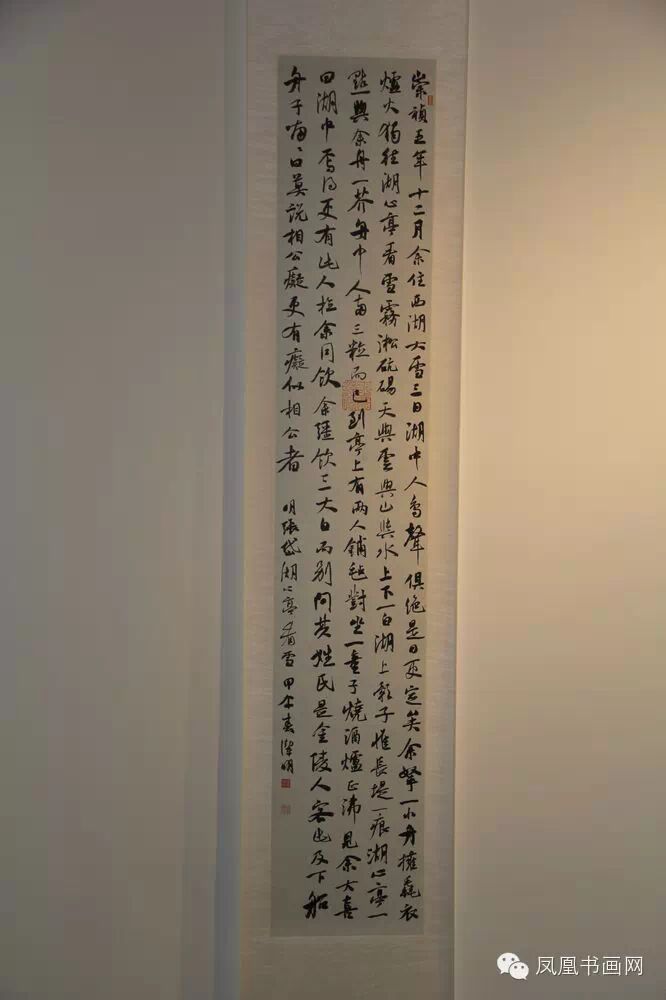 崇禎五年十二月余住西湖大雪三日湖中人鳥聲俱絶是日更定矣余拏一小舟擁毳衣
爐火獨往湖心亭看雪霧淞沆碭天與雲與山與水上下一白湖上影子惟長堤一痕湖心亭一
點與余舟一芥舟中人兩三粒而已到亭上有兩人鋪氈對坐一童子燒酒爐正沸見余大喜
曰湖中焉得更有此人拉余同飲余彊飲三大白而別問其姓氏是金陵人客此及下船
舟子喃喃曰莫說相公癡更有癡似相公者 明張岱湖心亭看雪 甲午春 明
凤凰书画网